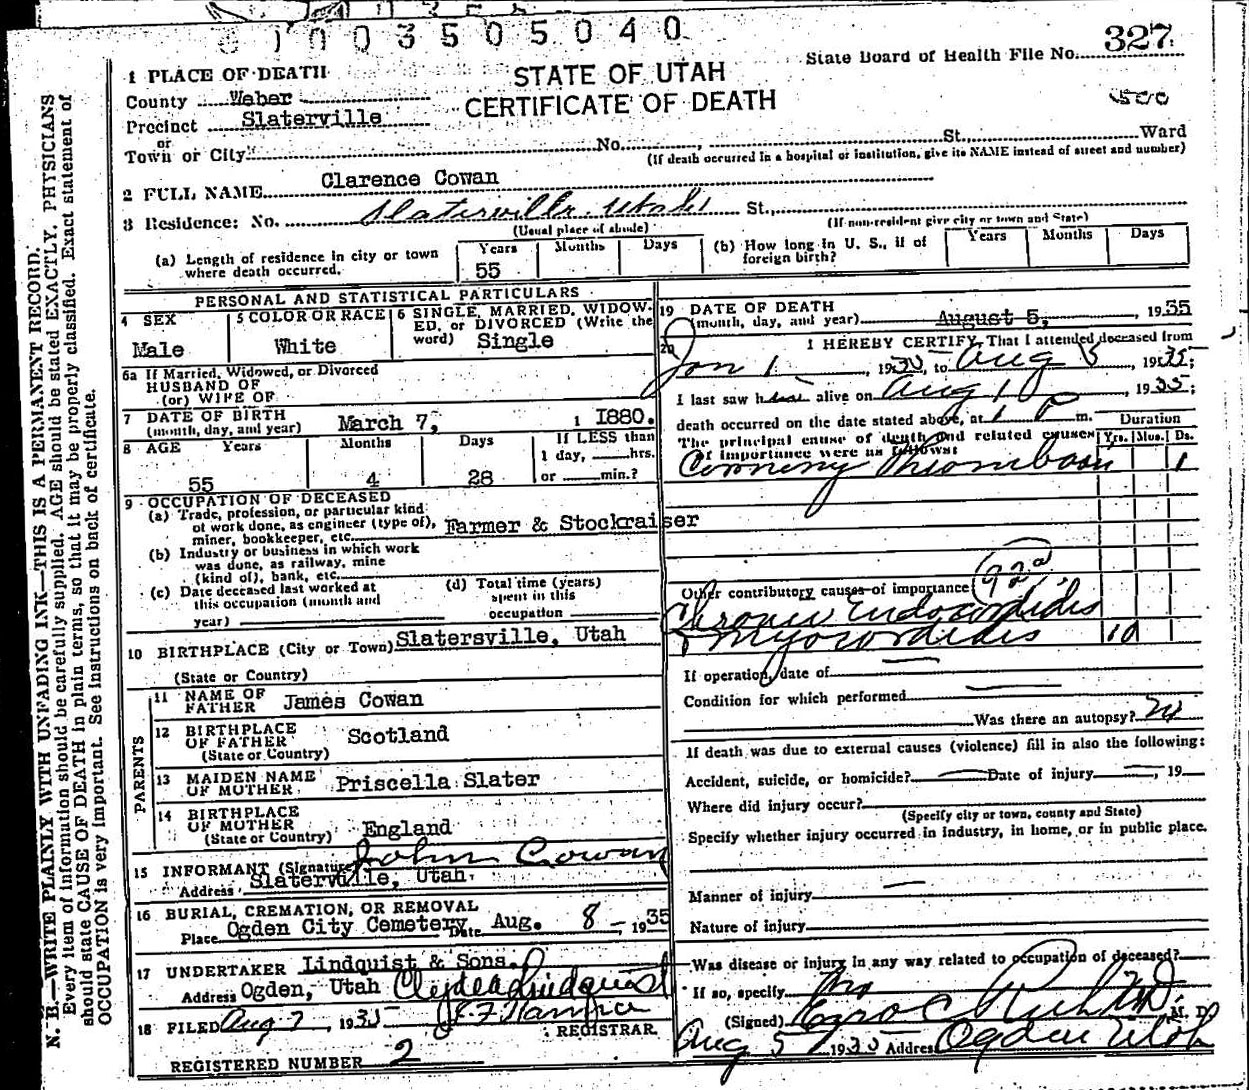 8 1 0 0 3 5 0 5 0 4 0
State Board of Health File No. 327
1 PLACE OF DEATH
STATE OF UTAH
CERTIFICATE OF DEATH
County Weber
Precinct Slaterville
or
Town or City No. , St. Ward
(If death occurred in a hospital or institution, give its NAME instead of street and number)
2 FULL NAME Clarence Cowan
3 Residence: No. Slaterville Utah St.,
(Usual place of abode) (If non-resident give city or town and State)
(a) Length of residence in city or town where death occurred. Years 55 Months Days
(b) How long in U. S., if of foreign birth? Years Months Days
PERSONAL AND STATISTICAL PARTICULARS
4 SEX Male
5 COLOR OR RACE White
6 SINGLE, MARRIED, WIDOWED, or DIVORCED (Write the word) Single
6a If Married, Widowed, or Divorced
HUSBAND OF
(or) WIFE OF
7 DATE OF BIRTH
(month, day, and year) March 7, 1 1880.
8 AGE Years 55 Months 4 Days 28 If LESS than 1 day, hrs. or min.?
9 OCCUPATION OF DECEASED
(a) Trade, profession, or particular kind of work done, as engineer (type of), miner, bookkeeper, etc. Farmer & Stockraiser
(b) Industry or business in which work was done, as railway, mine (kind of), bank, etc.
(c) Date deceased last worked at this occupation (month and year)
(d) Total time (years) spent in this occupation
10 BIRTHPLACE (City or Town) Slatersville, Utah
(State or Country)
PARENTS
11 NAME OF FATHER James Cowan
12 BIRTHPLACE OF FATHER (State or Country) Scotland
13 MAIDEN NAME OF MOTHER Priscella Slater
14 BIRTHPLACE OF MOTHER (State or Country) England
15 INFORMANT (Signature) John Cowan
Address Slaterville, Utah
16 BURIAL, CREMATION, OR REMOVAL
Place Ogden City Cemetery Date Aug. 8 - , 1935
17 UNDERTAKER Lindquist & Sons.
Address Ogden, Utah Clyde Lindquist
18 FILED Aug 7, 1935
REGISTRAR.
REGISTERED NUMBER 2
19 DATE OF DEATH
(month, day, and year) August 5, , 1935
20 I HEREBY CERTIFY, That I attended deceased from
Jan 1 , 1930, to Aug 5 , 1935;
I last saw him alive on Aug 1 , 1935;
death occurred on the date stated above, at 1 P m.
The principal cause of death and related causes of importance were as follows: Duration Yrs. Mos. Ds.
Coronery Thrombosis 1
Other contributory causes of importance 92a
Chronic Endocordidis
+ Myocordidis 10
If operation, date of
Condition for which performed
Was there an autopsy? No
If death was due to external causes (violence) fill in also the following:
Accident, suicide, or homicide? Date of injury , 19
Where did injury occur?
(Specify city or town, county and State)
Specify whether injury occurred in industry, in home, or in public place.
Manner of injury
Nature of injury
Was disease or injury in any way related to occupation of deceased?
If so, specify No
(Signed) Ezra C Rich MD , M. D.
Aug 5 , 1935 Address Ogden Utah
N. B.—WRITE PLAINLY WTH UNFADING INK—THIS IS A PERMANENT RECORD.
Every item of information should be carefully supplied. AGE should be stated EXACTLY. PHYSICIANS
should state CAUSE OF DEATH in plain terms, so that it may be properly classified. Exact statement of
OCCUPATION is very important. See instructions on back of certificate.